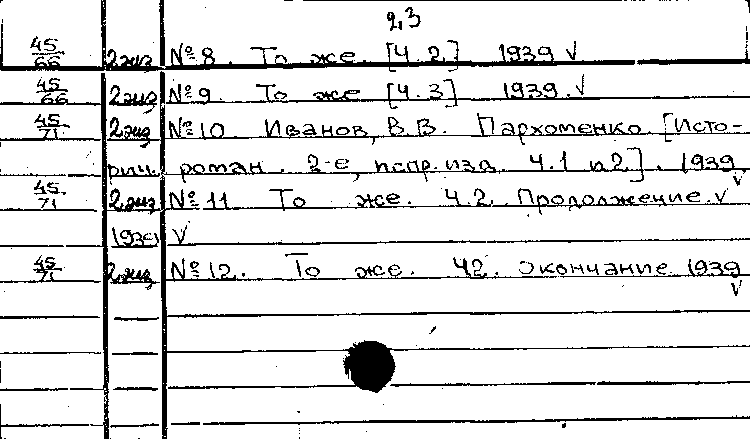 2,3
45/66 2 экз № 8. То же. [Ч. 2] 1939 √
45/66 2 экз № 9. То же [Ч. 3] 1939. √
45/71 2 экз № 10. Иванов, В. В. Пархоменко [Исто-
рич. роман. 2-е, испр. изд. Ч. 1 и 2]. 1939 √
45/71 2 экз № 11 То же. Ч. 2. Продолжение. √
1939 √
45/71 2 экз № 12. То же. Ч2. Окончание 1939 √